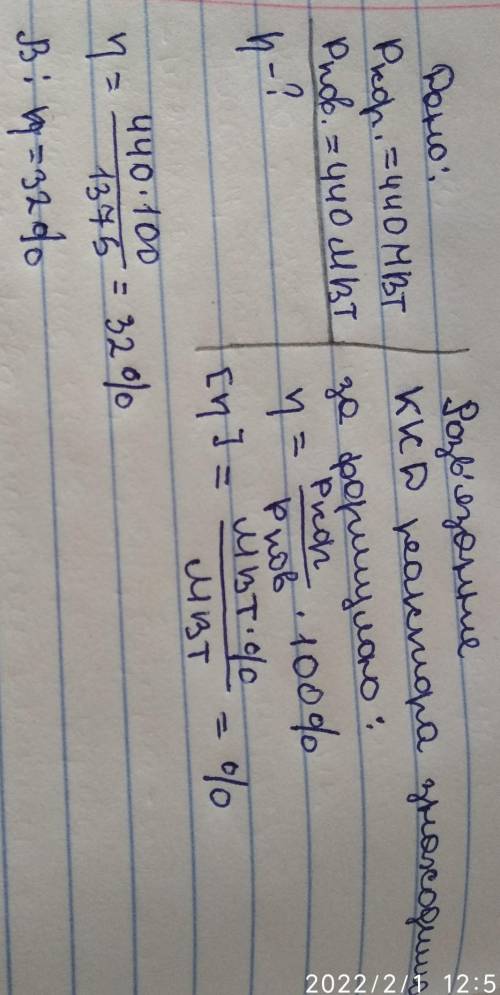 Дано:
Pкор. = 440 МВт
Pпов. = 440 МВт
η - ?
Розв'язання
ККД реактора знаходимо
за формулою:
η = Pкор / Pпов · 100%
[η] = МВт·% / МВт = %
η = 440·100 / 1375 = 32%
В: η = 32%
2022/2/1 12:5